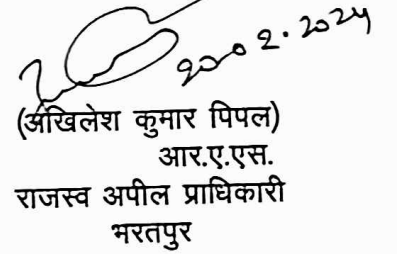 20.02.2024
(अखिलेश कुमार पिपल)
आर.ए.एस.
राजस्व अपील प्राधिकारी
भरतपुर